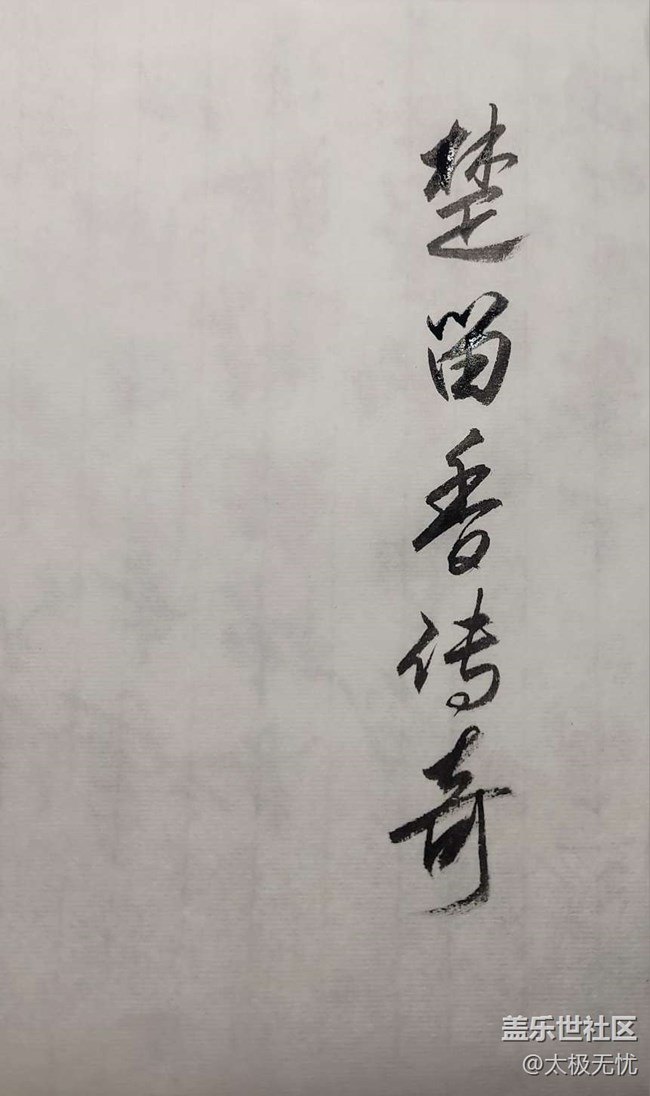 楚留香传奇
盖乐世社区
@太极无忧